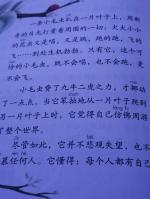 一条小毛虫趴在一片叶子上，用新
奇的目光观察着周围的一切：大大小小
的昆虫又是唱，又是跳，跑的跑，飞的
飞……到处生机勃勃。只有它，这个可
怜的小毛虫，既不会唱，也不会跑，更
不会飞。
小毛虫费了九牛二虎之力，才挪动
了一点点。当它笨拙地从一片叶子爬到
另一片叶子上时，它觉得自己仿佛周游
了整个世界。
尽管如此，它并不悲观失望，也不
羡慕任何人。它懂得：每个人都有自己